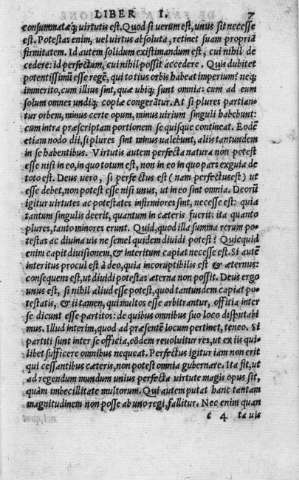 LIBER I. 7
consummataq; virtutis est. Quod si uerum est, unus sit necesse
est. Potestas enim, uel uirtus absoluta, retinet suam propriā
firmitatem. Id autem solidum existimandum est, cui nihil de
cedere: id perfectum, cui nihil possit accedere. Quis dubitet
potentissimū esse regē, qui totius orbis habeat imperium? neq;
immerito, cum illius sint, quæ ubiq; sunt omnia: cum ad eum
solum omnes undiq; copiæ congerātur. At si plures partian=
tur orbem, minus certe opum, minus uirium singuli habebunt:
cum intra præscriptam portionem se quisque contineat. Eodē
etiam modo dii, si plures sint minus ualebunt, aliis tantundem
in se habentibus. Virtutis autem perfecta natura non potest
esse nisi in eo, in quo totum est, non in eo in quo pars exigua de
toto est. Deus uero, si perfectus est (nam perfectus est) ut
esse debet, non potest esse nisi unus, ut in eo sint omnia. Deorū
igitur uirtutes ac potestates infirmiores sint, necesse est: quia
tantum singulis deerit, quantum in cæteris fuerit: ita quanto
plures, tanto minores erunt. Quid, quod illa summa rerum po=
testas ac diuina uis ne semel quidem diuidi potest? Quicquid
enim capit diuisionem, & interitum capiat necesse est. Si autē
interitus procul est à deo, quia incorruptibilis est & æternus:
consequens est, ut diuidi potestas æterna non possit. Deus ergo
unus est, si nihil aliud esse potest, quod tantundem capiat po=
testatis, & ii tamen, qui multos esse arbitrantur, officia inter
se dicunt esse partitos: de quibus omnibus suo loco disputabi
mus. Illud interim, quod ad præsentē locum pertinet, teneo. Si
partiti sunt inter se officia, eòdem reuoluitur res, ut ex iis qui=
libet sufficere omnibus nequeat. Perfectus igitur iam non erit
qui cessantibus cæteris, non potest omnia gubernare. Ita fit, ut
ad regendum mundum unius perfecta uirtute magis opus sit,
quàm imbecillitate multorum. Qui autem putat hanc tantam
magnitudinem non posse ab uno regi, fallitur. Nec enim quan
4 ta uis